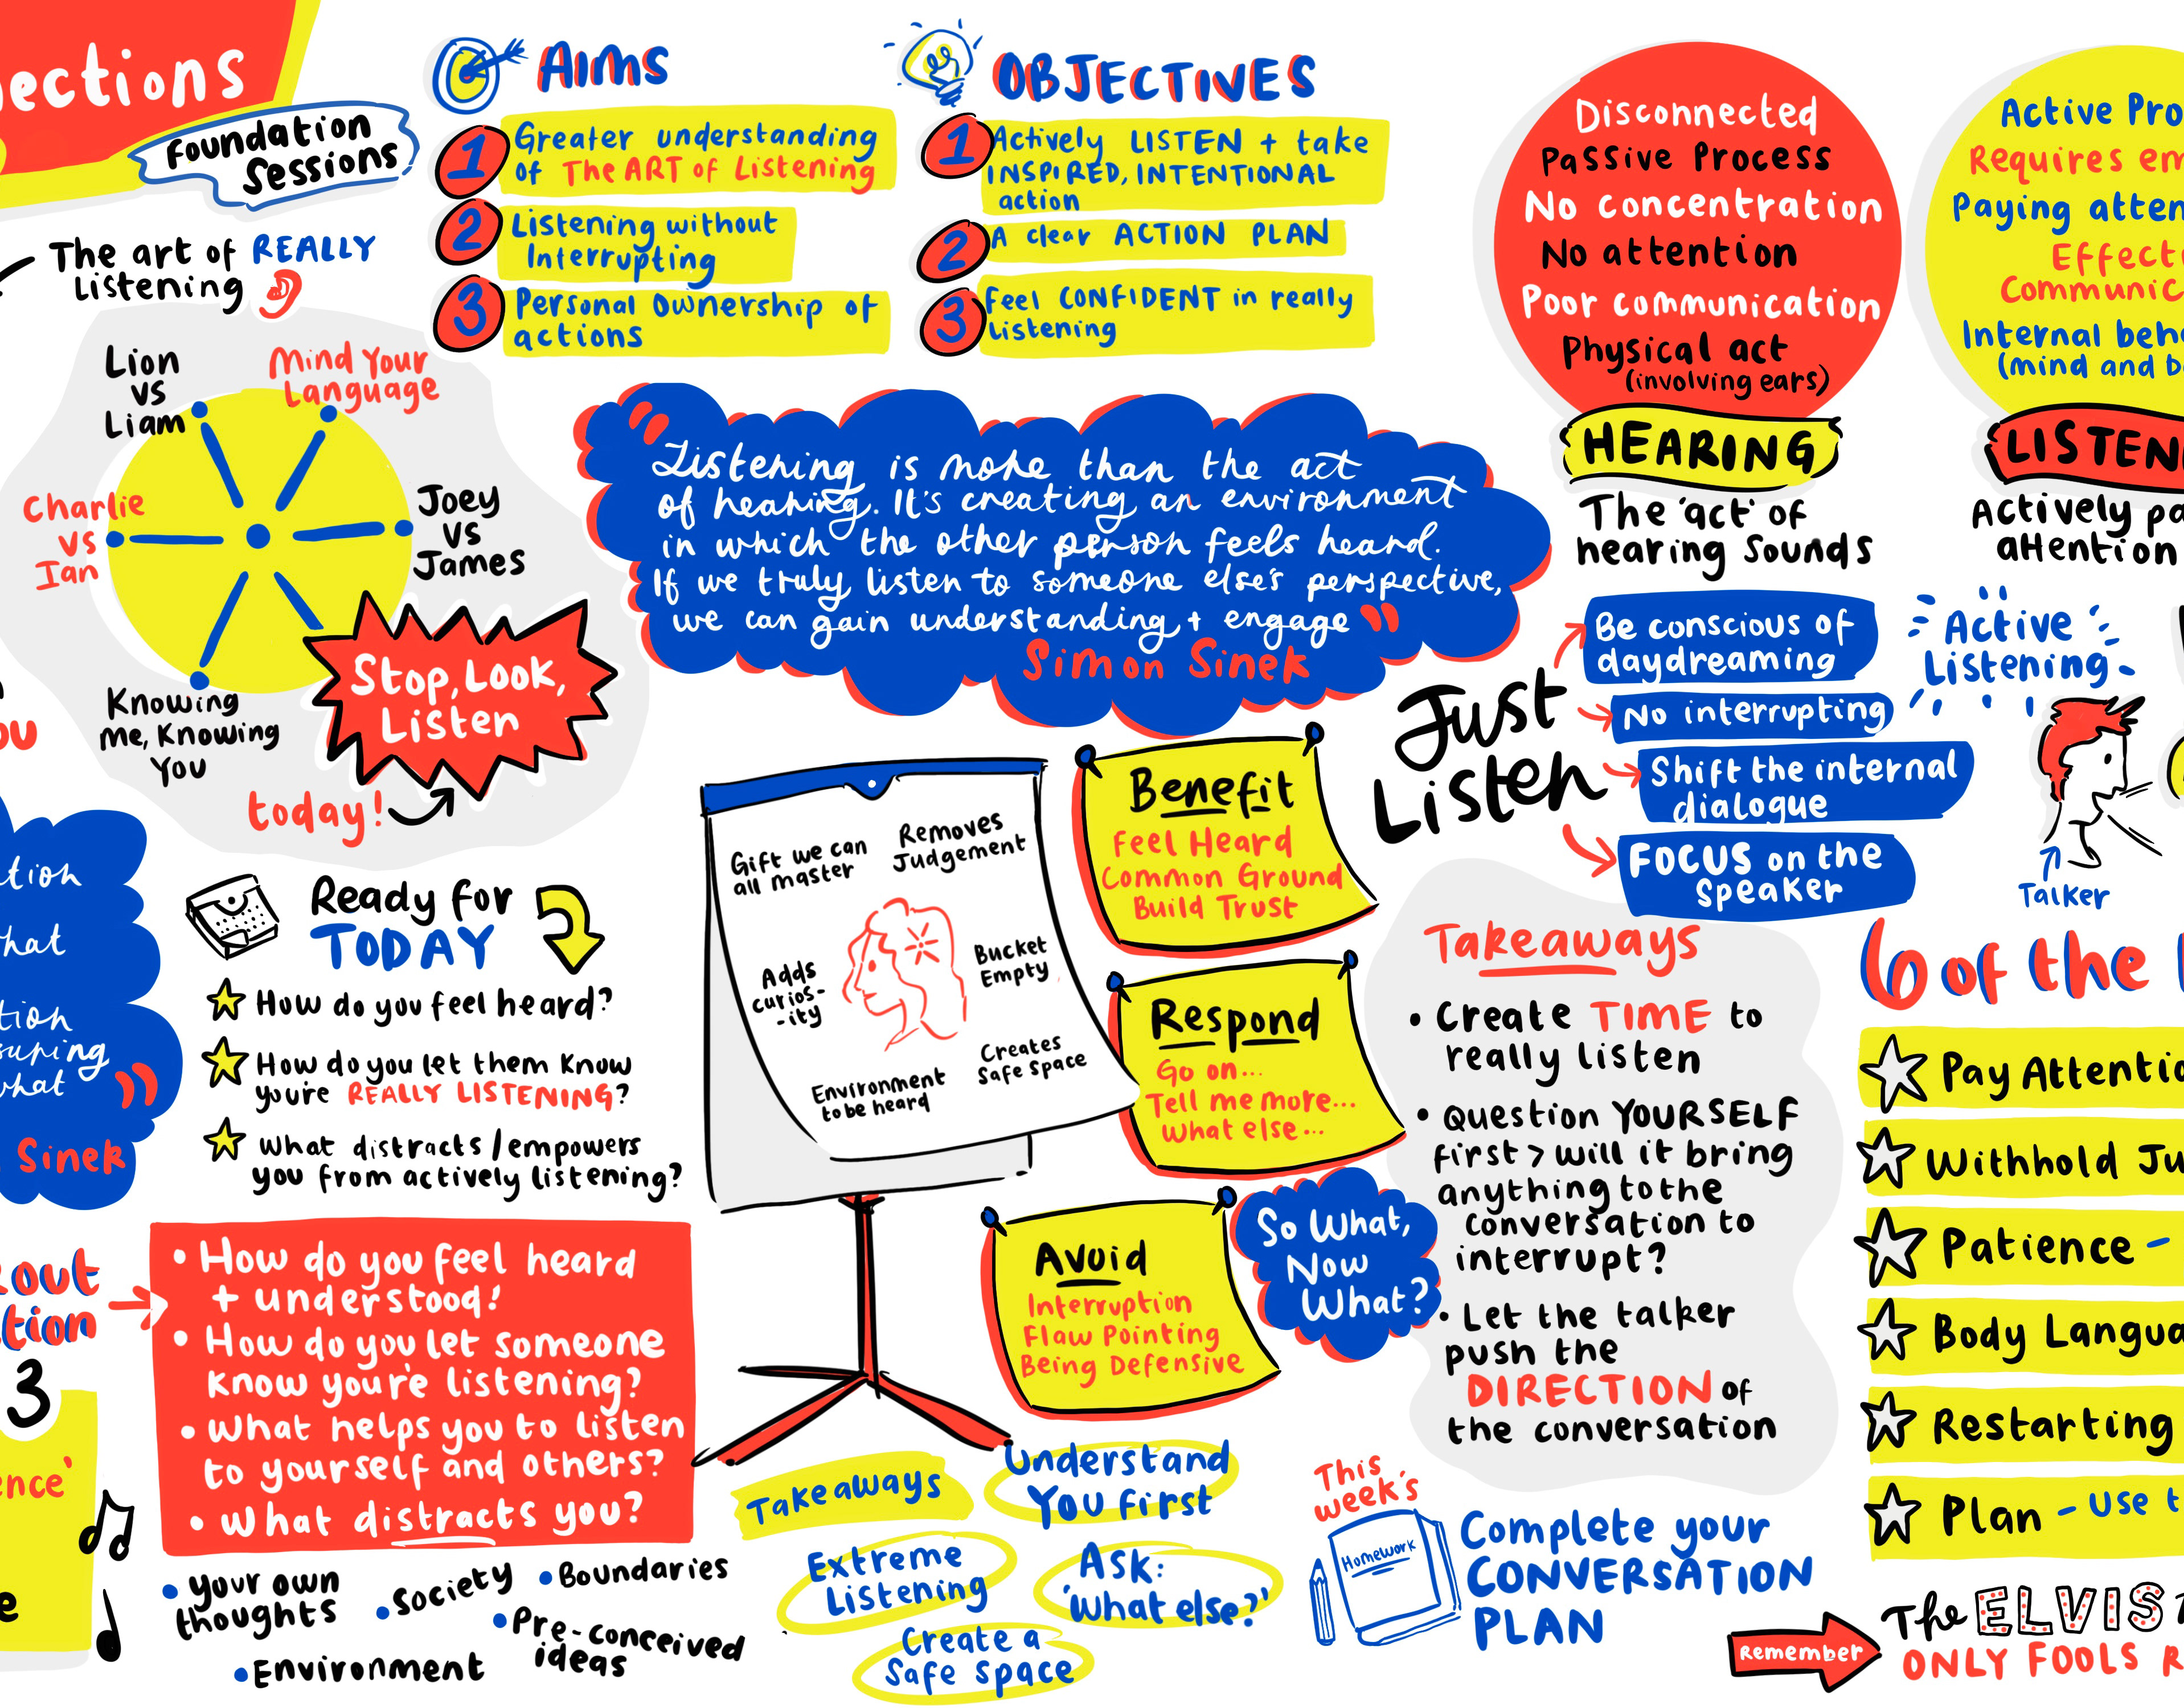 Foundation
Sessions
The art of REALLY
Listening
Lion
vs
Liam
Mind Your
Language
Charlie
vs
Ian
Joey
vs
James
Knowing
me, Knowing
You
Stop, Look,
Listen
today!
AIMS
1 Greater understanding
of The ART of Listening
2 Listening without
Interrupting
3 Personal Ownership of
actions
OBJECTIVES
1 Actively LISTEN + take
INSPIRED, INTENTIONAL
action
2 A clear ACTION PLAN
3 Feel CONFIDENT in really
Listening
"Listening is more than the act
of hearing. It's creating an environment
in which the other person feels heard.
If we truly listen to someone else's perspective,
we can gain understanding + engage"
Simon Sinek
Disconnected
Passive Process
No concentration
No attention
Poor communication
Physical act
(involving ears)
HEARING
The 'act' of
hearing sounds
Active
Requires
Paying
Internal
(mind and
Actively
attention
Just
Listen
Be conscious of
daydreaming
No interrupting
Shift the internal
dialogue
FOCUS on the
Speaker
Active
Listening
Talker
Sinek"
Ready for
TODAY
How do you feel heard?
How do you let them know
you're REALLY LISTENING?
What distracts/empowers
you from actively listening?
3
• How do you feel heard
+ understood!
• How do you let someone
know you're listening?
• What helps you to listen
to yourself and others?
• What distracts you?
• your own
thoughts
• Society
• Boundaries
• Environment
• Pre-conceived
ideas
Gift we can
all master
Removes
Judgement
Adds
curios-
-ity
Bucket
Empty
Creates
Safe space
Environment
to be heard
Benefit
Feel Heard
Common Ground
Build Trust
Respond
Go on...
Tell me more...
What else...
Avoid
Interruption
Flaw Pointing
Being Defensive
So What,
Now
What?
Takeaways
Understand
You first
Extreme
Listening
Ask:
'What else?'
Create a
Safe space
Takeaways
• Create TIME to
really listen
• Question YOURSELF
first > will it bring
anything to the
conversation to
interrupt?
• Let the talker
push the
DIRECTION of
the conversation
This
week's
Homework
Complete your
CONVERSATION
PLAN
6 of the
Pay
Withhold
Patience -
Body
Restarting
Plan - Use
Remember
The ELVIS
ONLY FOOLS